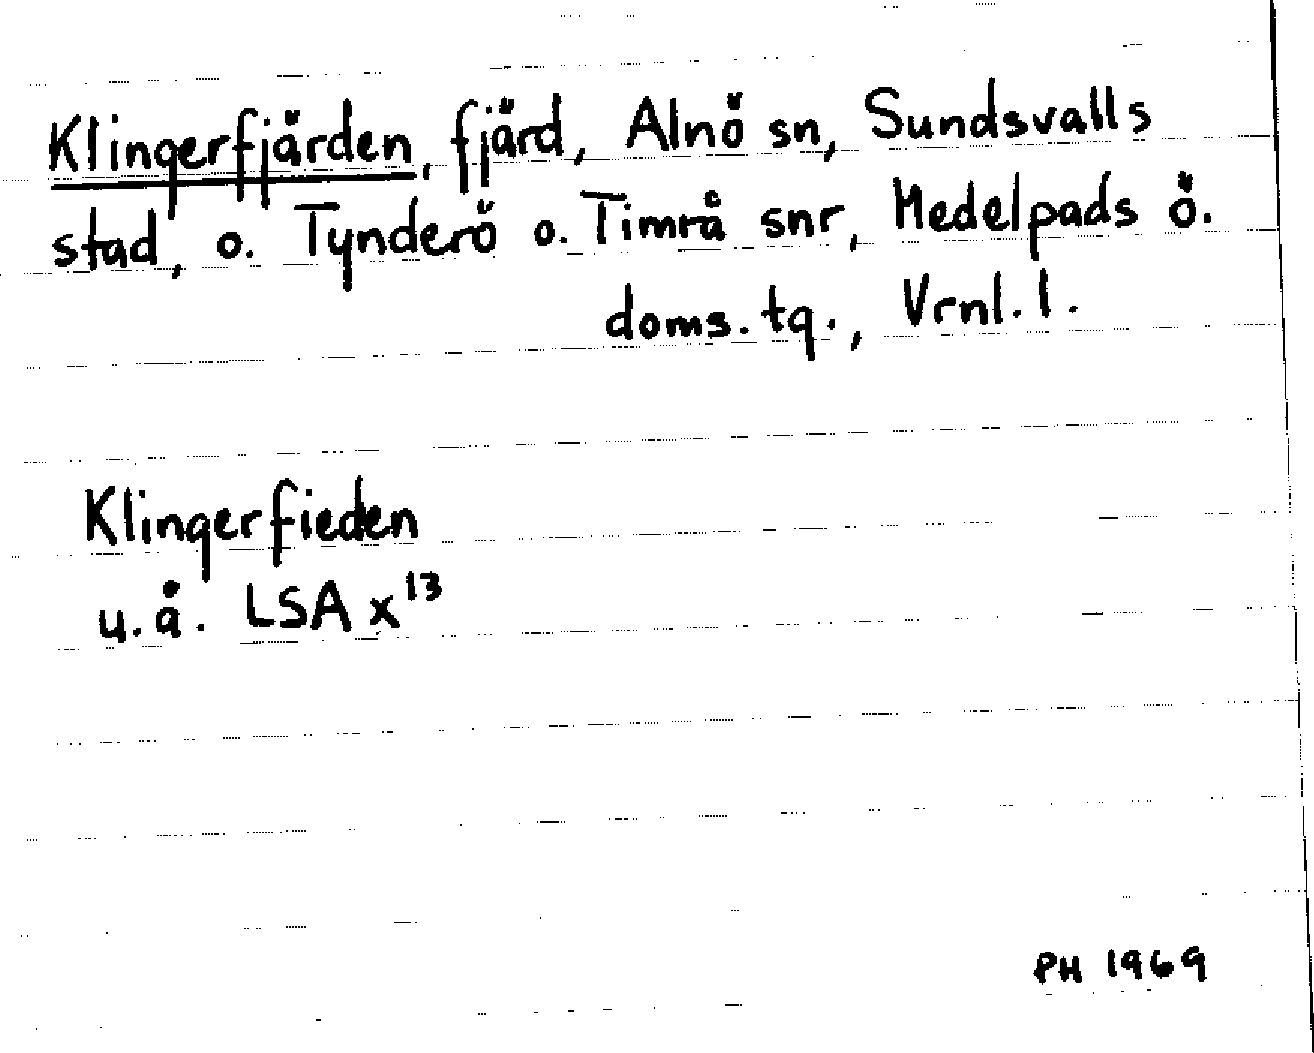 Klingerfjärden, fjärd, Alnö sn, Sundsvalls
stad, o. Tynderö o. Timrå snr, Medelpads ö.
doms. tg., Vrnl. l.
Klingerfieden
u.å. LSA x¹³
PH 1969